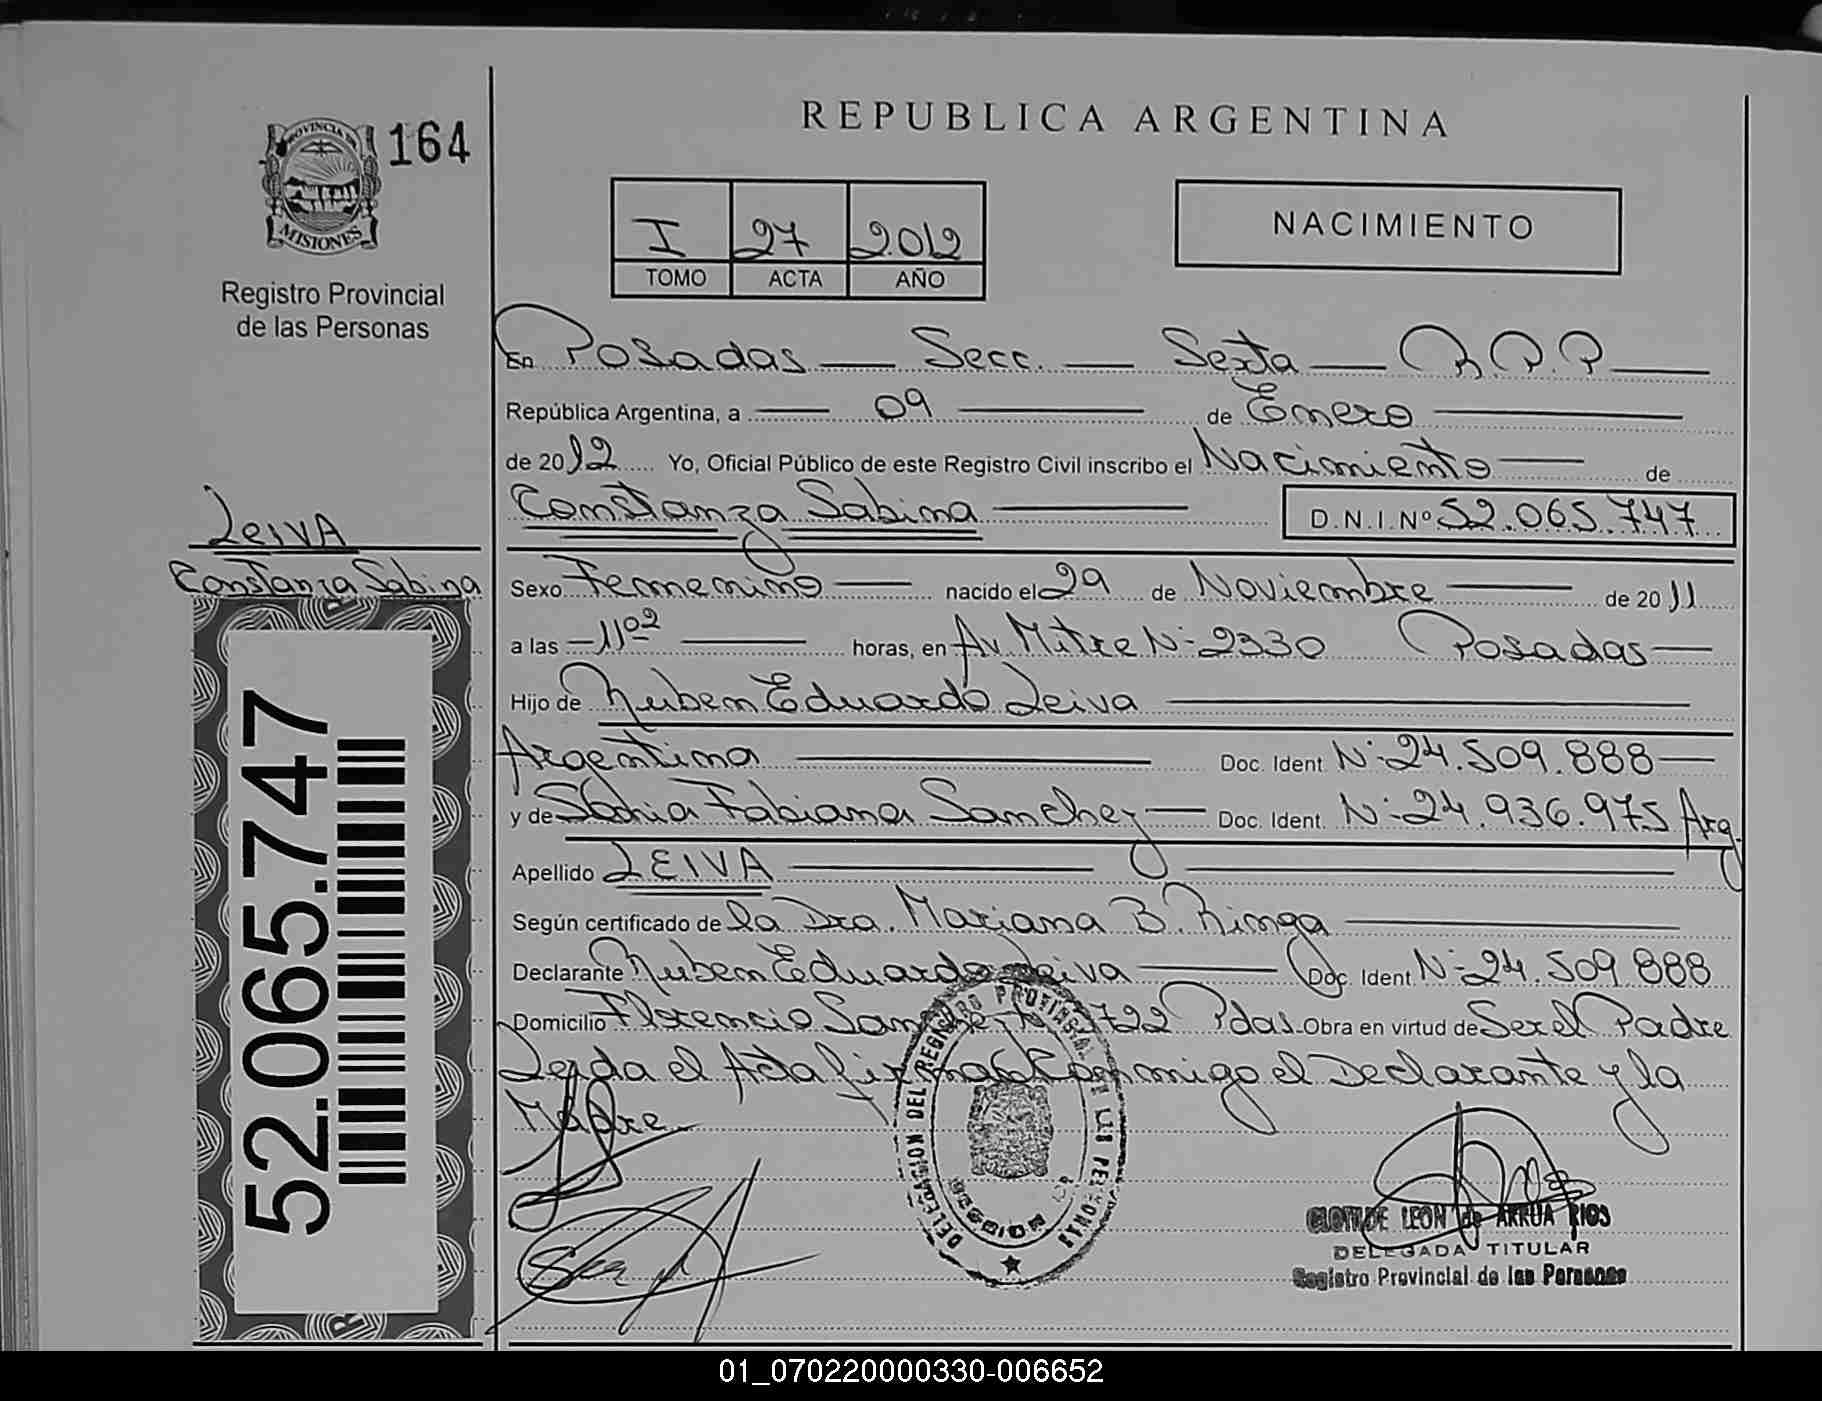 PROVINCIA DE
MISIONES
164
Registro Provincial
de las Personas
REPUBLICA ARGENTINA
I 27 2.012
TOMO ACTA AÑO
NACIMIENTO
En Posadas Secc. Sexta R.P.P
República Argentina, a 09 de Enero
de 2012 Yo, Oficial Público de este Registro Civil inscribo el Nacimiento de
Constanza Sabina D.N.I.Nº 52.065.747
LEIVA
Constanza Sabina
Sexo Femenino nacido el 29 de Noviembre de 2011
a las 11 02 horas, en Av. Mitre Nº 2330 Posadas
Hijo de Ruben Eduardo Leiva
Argentina Doc. Ident. Nº 24.509.888
y de Fabiana Sanchez Doc. Ident. Nº 24.936.975 Arg.
Apellido LEIVA
Según certificado de la Dra. Mariana B. Ringa
Declarante Ruben Eduardo Leiva Doc. Ident. Nº 24.509.888
Domicilio Florencio Sanchez Nº 1722 Pdas. Obra en virtud de Ser el Padre
Leida el Acta firmado conmigo el Declarante y la
Madre.
52.065.747
DELEGACION DEL REGISTRO PROVINCIAL DE LAS PERSONAS
MISIONES
CLOTILDE LEON de ARRUA RIOS
DELEGADA TITULAR
Registro Provincial de las Personas
01_070220000330-006652